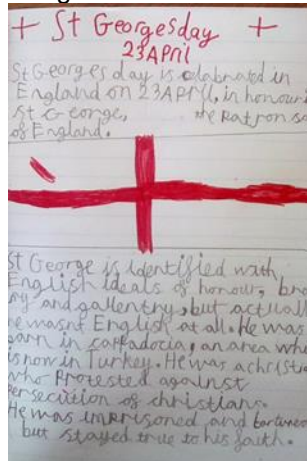 + St Georgesday +
23 April
St Georges day is celabrated in
England on 23 April, in honour
St George, the Patron
of England.
St George is identified with
English ideals of honour,
and gallentry, but actuall
he wasnt English at all. He was
in cappadocia, an area
is now in Turkey. He was a christia
who Protested against
Persecution of christians.
He was imprisoned and
but stayed true to his faith.